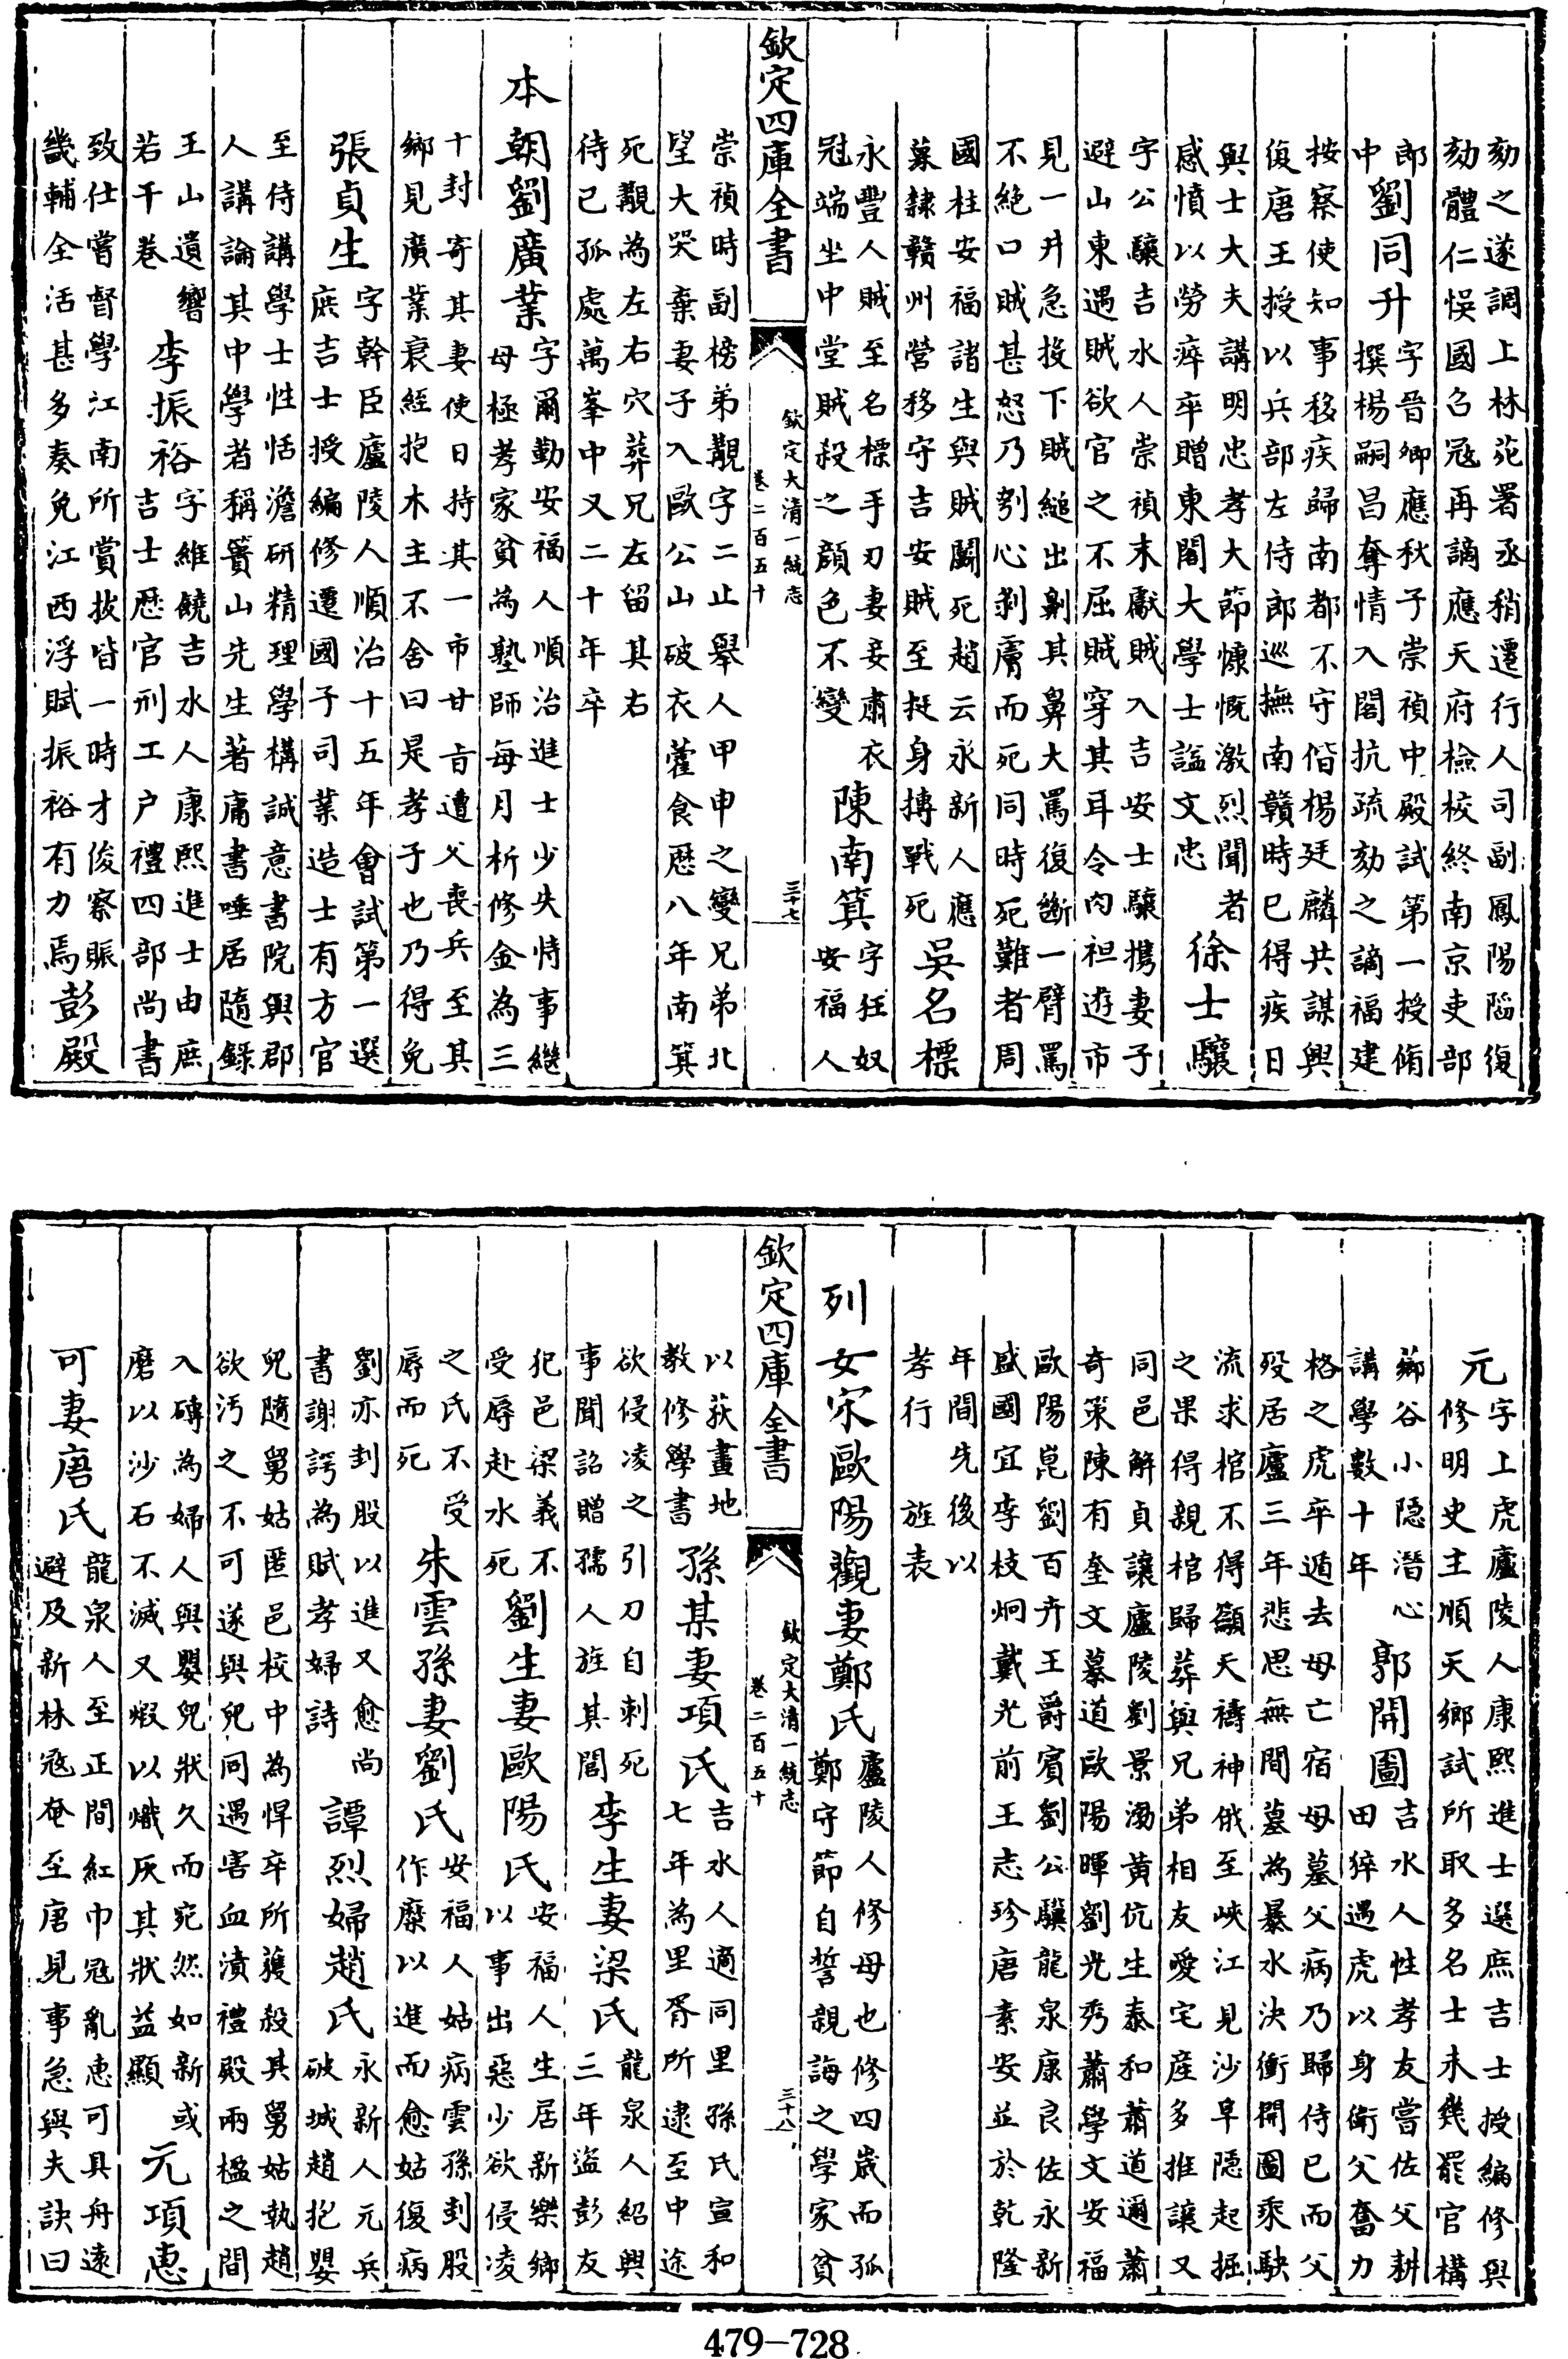 劾之遂調上林苑署丞稍遷行人司副鳳陽陷復
劾體仁悞國召冦再謫應天府檢校終南京吏部
郎中劉同升字晉卿應秋子崇禎中殿試第一授脩
撰楊嗣昌奪情入閣抗疏劾之謫福建
按察使知事移疾歸南都不守偕楊廷麟共謀興
復唐王授以兵部左侍郎巡撫南贛時已得疾日
與士大夫講明忠孝大節慷慨激烈聞者
感憤以勞瘁卒贈東閣大學士諡文忠徐士驤
字公驤吉水人崇禎末獻賊入吉安士驤携妻子
避山東遇賊欲官之不屈賊穿其耳令肉袒遊市
見一井急投下賊縋出劓其鼻大罵復斷一臂罵
不絕口賊甚怒乃刳心剝膚而死同時死難者周
國柱安福諸生與賊鬭死趙云永新人應
募隸贛州營移守吉安賊至挺身搏戰死吳名標
永豐人賊至名標手刃妻妾肅衣
冠端坐中堂賊殺之顔色不變陳南箕字狂奴
安福人
欽定四庫全書
欽定大清一統志
卷二百五十
三十七
崇禎時副榜弟覯字二止舉人甲申之變兄弟北
望大哭棄妻子入歐公山破衣藿食歴八年南箕
死覯為左右穴葬兄左留其右
待己孤處萬峯中又二十年卒
本朝劉廣業字爾勤安福人順治進士少失恃事繼
母極孝家貧為塾師每月析修金為三
十封寄其妻使日持其一市甘旨遭父喪兵至其
鄉見廣業衰絰抱木主不舍曰是孝子也乃得免
張貞生字幹臣廬陵人順治十五年會試第一選
庶吉士授編修遷國子司業造士有方官
至侍講學士性恬澹研精理學構誠意書院與郡
人講論其中學者稱簣山先生著庸書唾居隨錄
王山遺響
若干卷李振裕字維饒吉水人康熙進士由庶
吉士歴官刑工户禮四部尚書
致仕嘗督學江南所賞拔皆一時才俊察賑
畿輔全活甚多奏免江西浮賦振裕有力焉彭殿
元字上虎廬陵人康熙進士選庶吉士授編修與
修明史主順天鄉試所取多名士未幾罷官構
薌谷小隠潛心
講學數十年郭開圖吉水人性孝友嘗佐父耕
田猝遇虎以身衛父奮力
格之虎卒遁去母亡宿母墓父病乃歸侍已而父
殁居廬三年悲思無間墓為暴水決衝開圖乘駃
流求棺不得籲天禱神俄至峽江見沙阜隠起掘
之果得親棺歸葬與兄弟相友愛宅産多推讓又
同邑解貞讓廬陵劉景渤黄伉生泰和蕭道邇蕭
奇策陳有奎文摹道歐陽暉劉光秀蕭學文安福
歐陽崑劉百卉王爵賓劉公驥龍泉康良佐永新
盛國宜李枝炯戴光前王志珍唐素安並於乾隆
年間先後以
孝行 旌表
列女宋歐陽觀妻鄭氏廬陵人修母也修四歲而孤
鄭守節自誓親誨之學家貧
欽定四庫全書
欽定大清一統志
卷二百五十
三十八
以荻畫地
教修學書孫某妻項氏吉水人適同里孫氏宣和
七年為里胥所逮至中途
欲侵凌之引刀自刺死
事聞詔贈孺人旌其閭李生妻梁氏龍泉人紹興
三年盜彭友
犯邑梁義不
受辱赴水死劉生妻歐陽氏安福人生居新樂鄉
以事出惡少欲侵凌
之氏不受
辱而死朱雲孫妻劉氏安福人姑病雲孫刲股
作糜以進而愈姑復病
劉亦刲股以進又愈尚
書謝諤為賦孝婦詩譚烈婦趙氏永新人元兵
破城趙抱嬰
兒隨舅姑匿邑校中為悍卒所獲殺其舅姑執趙
欲汚之不可遂與兒同遇害血漬禮殿兩楹之間
入磚為婦人與嬰兒狀久而宛然如新或
磨以沙石不滅又煆以熾灰其狀益顯元項惠
可妻唐氏龍泉人至正間紅巾冦亂惠可具舟遠
避及新林冦奄至唐見事急與夫訣曰
479-728